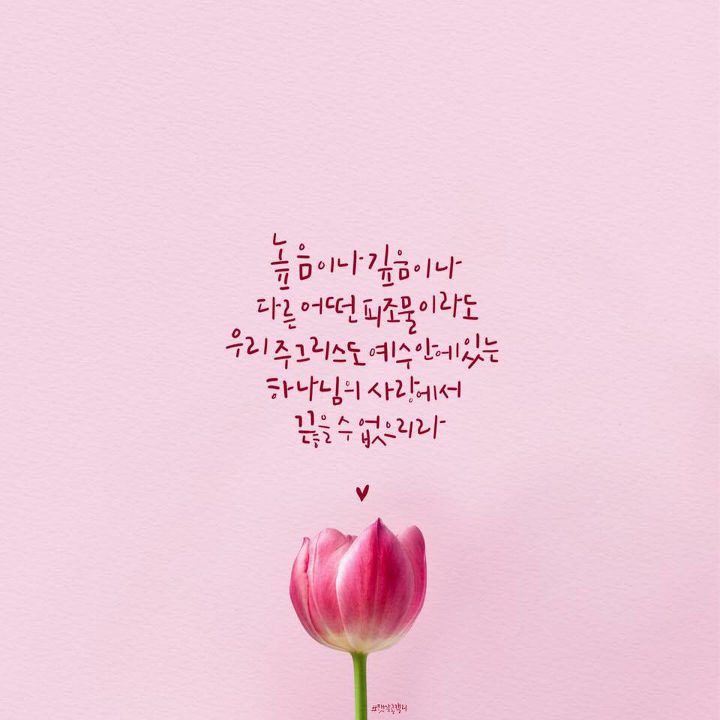 높음이나 깊음이나
다른 어떤 피조물이라도
우리 주 그리스도 예수 안에 있는
하나님의 사랑에서
끊을 수 없으리라